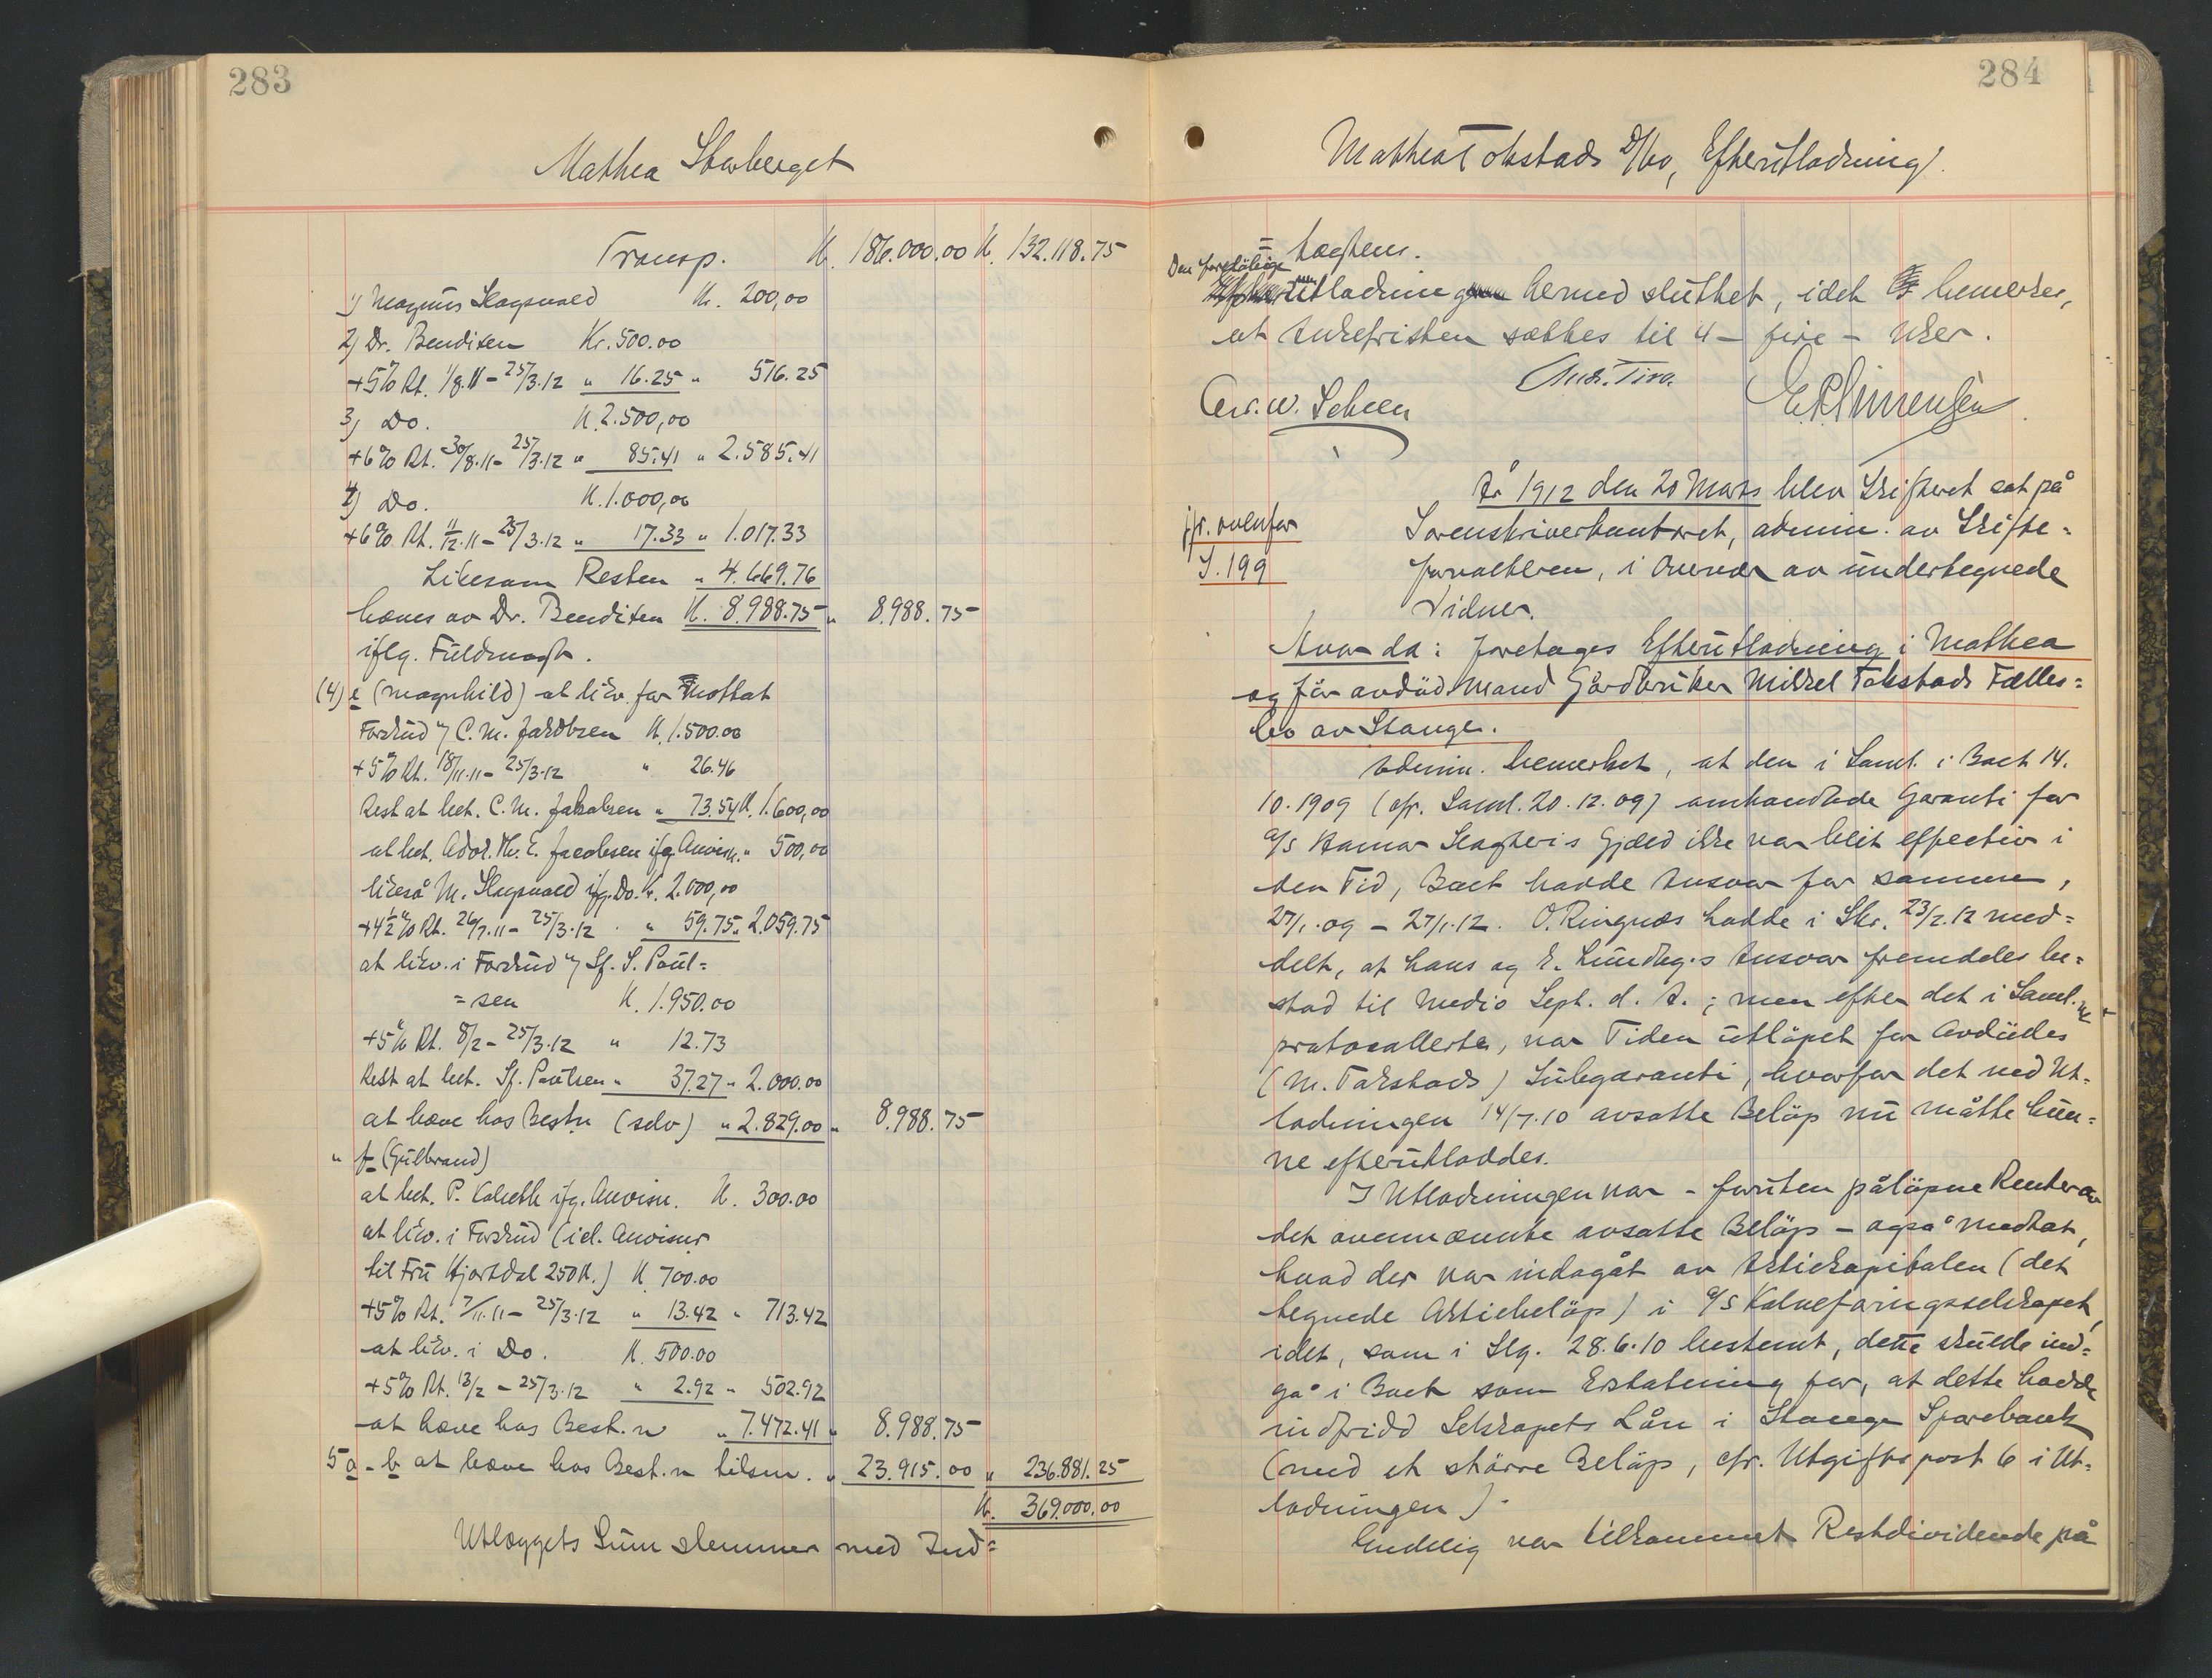 283
Mathea Storberget
Transp. K. 186.000.00 K. 132.118.75
1) Magnus Slagsvold Kr. 200,00
2) Dr. Bendixen Kr. 500.00
+5% Rt. 1/8.11 - 25/3.12 " 16.25 " 516.25
3) Do. K. 2.500,00
+6% Rt. 30/8.11 - 25/3.12 " 85.41 " 2.585.41
4) Do. K. 1.000,00
+6% Rt. 11/12.11 - 25/3.12 " 17.33 " 1.017.33
Likesom Resten " 4.669.76
hæves av Dr. Bendixen K. 8.988.75 " 8.988.75
iflg. Fuldmagt.
(4) e (Magnhild) at likv. for mottat
Forskud % C. M. Jakobsen K. 1.500.00
+5% Rt. 18/11.11 - 25/3.12 " 26.46
Rest at bet. C. M. Jakobsen " 73.54 K. 1.600,00
at bet. Advok. Th. E. Jacobsen ifg. Anvisn. " 500,00
likeså M. Slagsvold ifg. Do. K. 2.000,00
+4½% Rt. 26/7.11 - 25/3.12 " 59.75 " 2.059.75
at likv. i Forskud % Sf. S. Poul=
=sen K. 1.950.00
+5% Rt. 8/2 - 25/3.12 " 12.73
Rest at bet. Sf. Poulsen " 37.27 " 2.000.00
at hæve hos Best.n (selv) " 2.829.00 " 8.988.75
" f (Gulbrand)
at bet. P. ifg. Anvisn. K. 300.00
at likv. i Forskud (icl. Anvisn.
til Fru Hjortdal 250 K.) K. 700.00
+5% Rt. 7/11.11 - 25/3.12 " 13.42 " 713.42
at likv. i Do. K. 500.00
+5% Rt. 13/2 - 25/3.12 " 2.92 " 502.92
at hæve hos Best.n " 7.472.41 " 8.988.75
5 a - b at hæve hos Best.n tilsm. " 23.915.00 " 236.881.25
K. 369.000.00
Utlæggets Sum stemmer med Ind=
284
Mathea Tokstads D/bo, Efterutlodning.
= tægtens.
Den foreløbige
utlodning hermed sluttet, idet bemerkes,
at Ankefristen sættes til 4 - fire - Uker.
And. Tiro.
Chr. W. Scheen E. R. Simensen
År 1912 den 20 Mars blev Skifteret sat på
jfr. ovenfor Sorenskriverkontoret, admin. av Skifte=
S. 199 forvalteren, i Overvær av undertegnede
Vidner.
Hvor da: foretages Efterutlodning i Mathea
og før avdød Mand Gårdbruker Mikkel Tokstads Fælles=
bo av Stange.
Admin. bemerket, at den i Saml. i Boet 14.
10.1909 (cfr. Saml. 20.12.09) omhandlede Garanti for
A/S Hamar Slagteris Gjæld ikke var blit effectiv i
den Tid, Boet hadde Ansvar for samme,
27/1.09 - 27/1.12. O. Ringnes hadde i Skr. 23/2.12 med=
delt, at hans og E. Lundbys Ansvar fremdeles be=
stod til medio Sept. d. A.; men efter det i Saml.
protocollerte, var Tiden utløpet for Avdødes
(M. Tokstads) Subgaranti, hvorfor det ved Ut=
lodningen 14/7.10 avsatte Beløp nu måtte kun=
ne efterutloddes.
I Utlodningen var - foruten påløpne Renter av
det ovennævnte avsatte Beløp - også medtat,
hvad der var indgåt av Aktiekapitalen (det
tegnede Aktiebeløp) i A/S Kalvefôringsselskapet,
idet, som i Slg. 28.6.10 bestemt, dette skulde ind=
gå i Boet som Erstatning for, at dette hadde
indfridd Selskapets Lån i Stange Sparebank
(med et større Beløp, cfr. Utgiftspost 6 i Ut=
lodningen).
Endelig var tilkommet Restdividende på